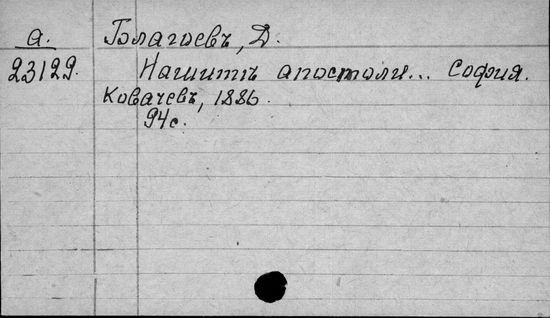 а. Благоевъ, Д.
23129. Нашитѣ апостоли... София.
Ковачевъ, 1886.
94с.